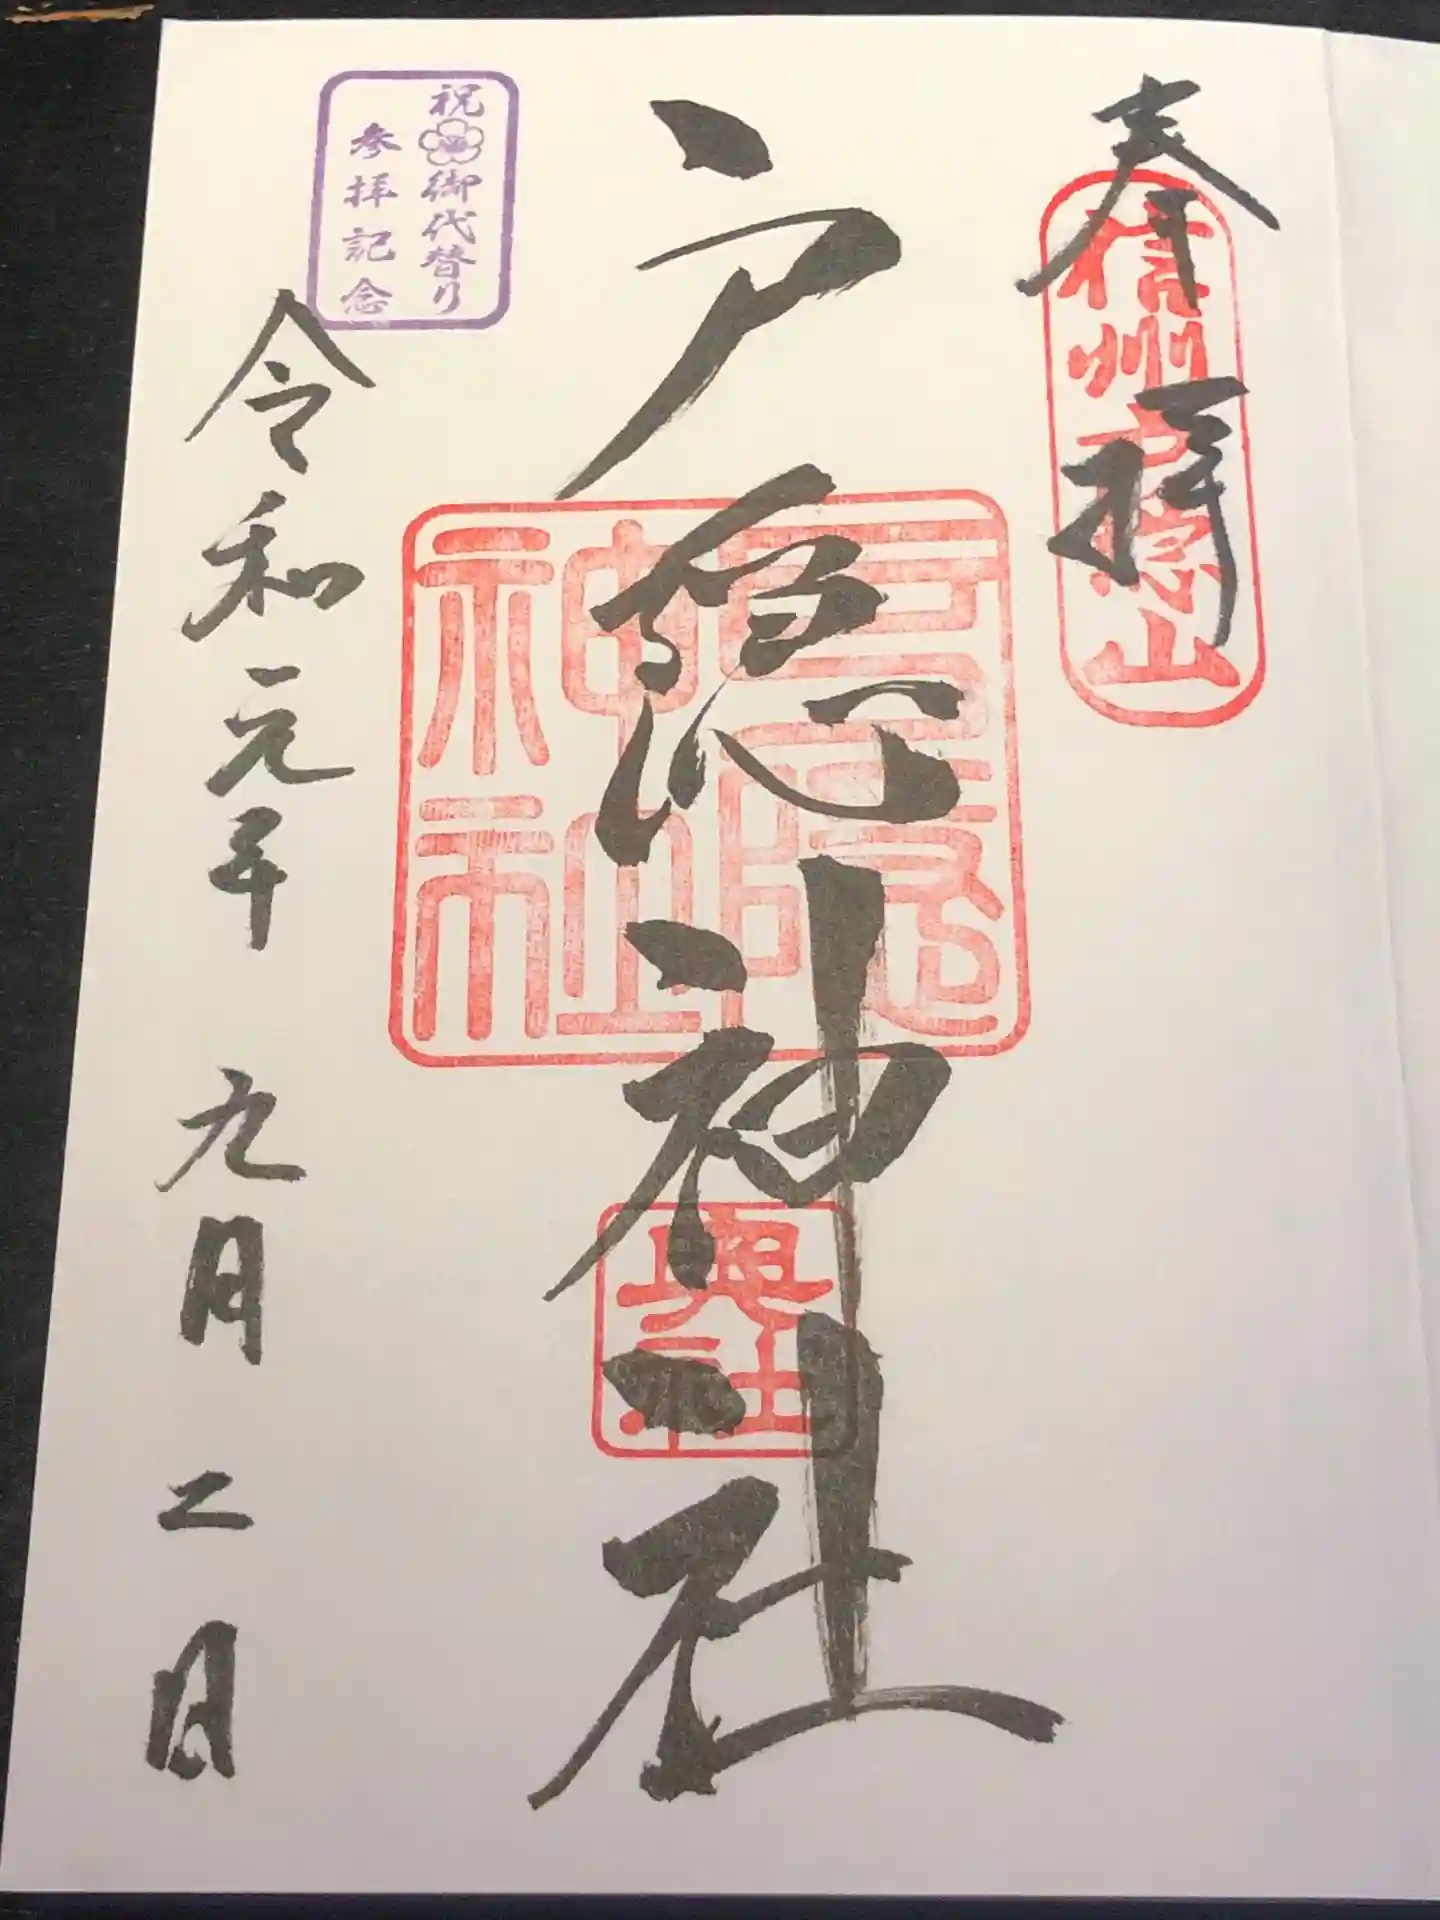 奉拝
信州戸隠山
戸隠神社
戸隠神社
奥社
祝御代替り
参拝記念
令和元年 九月 二日